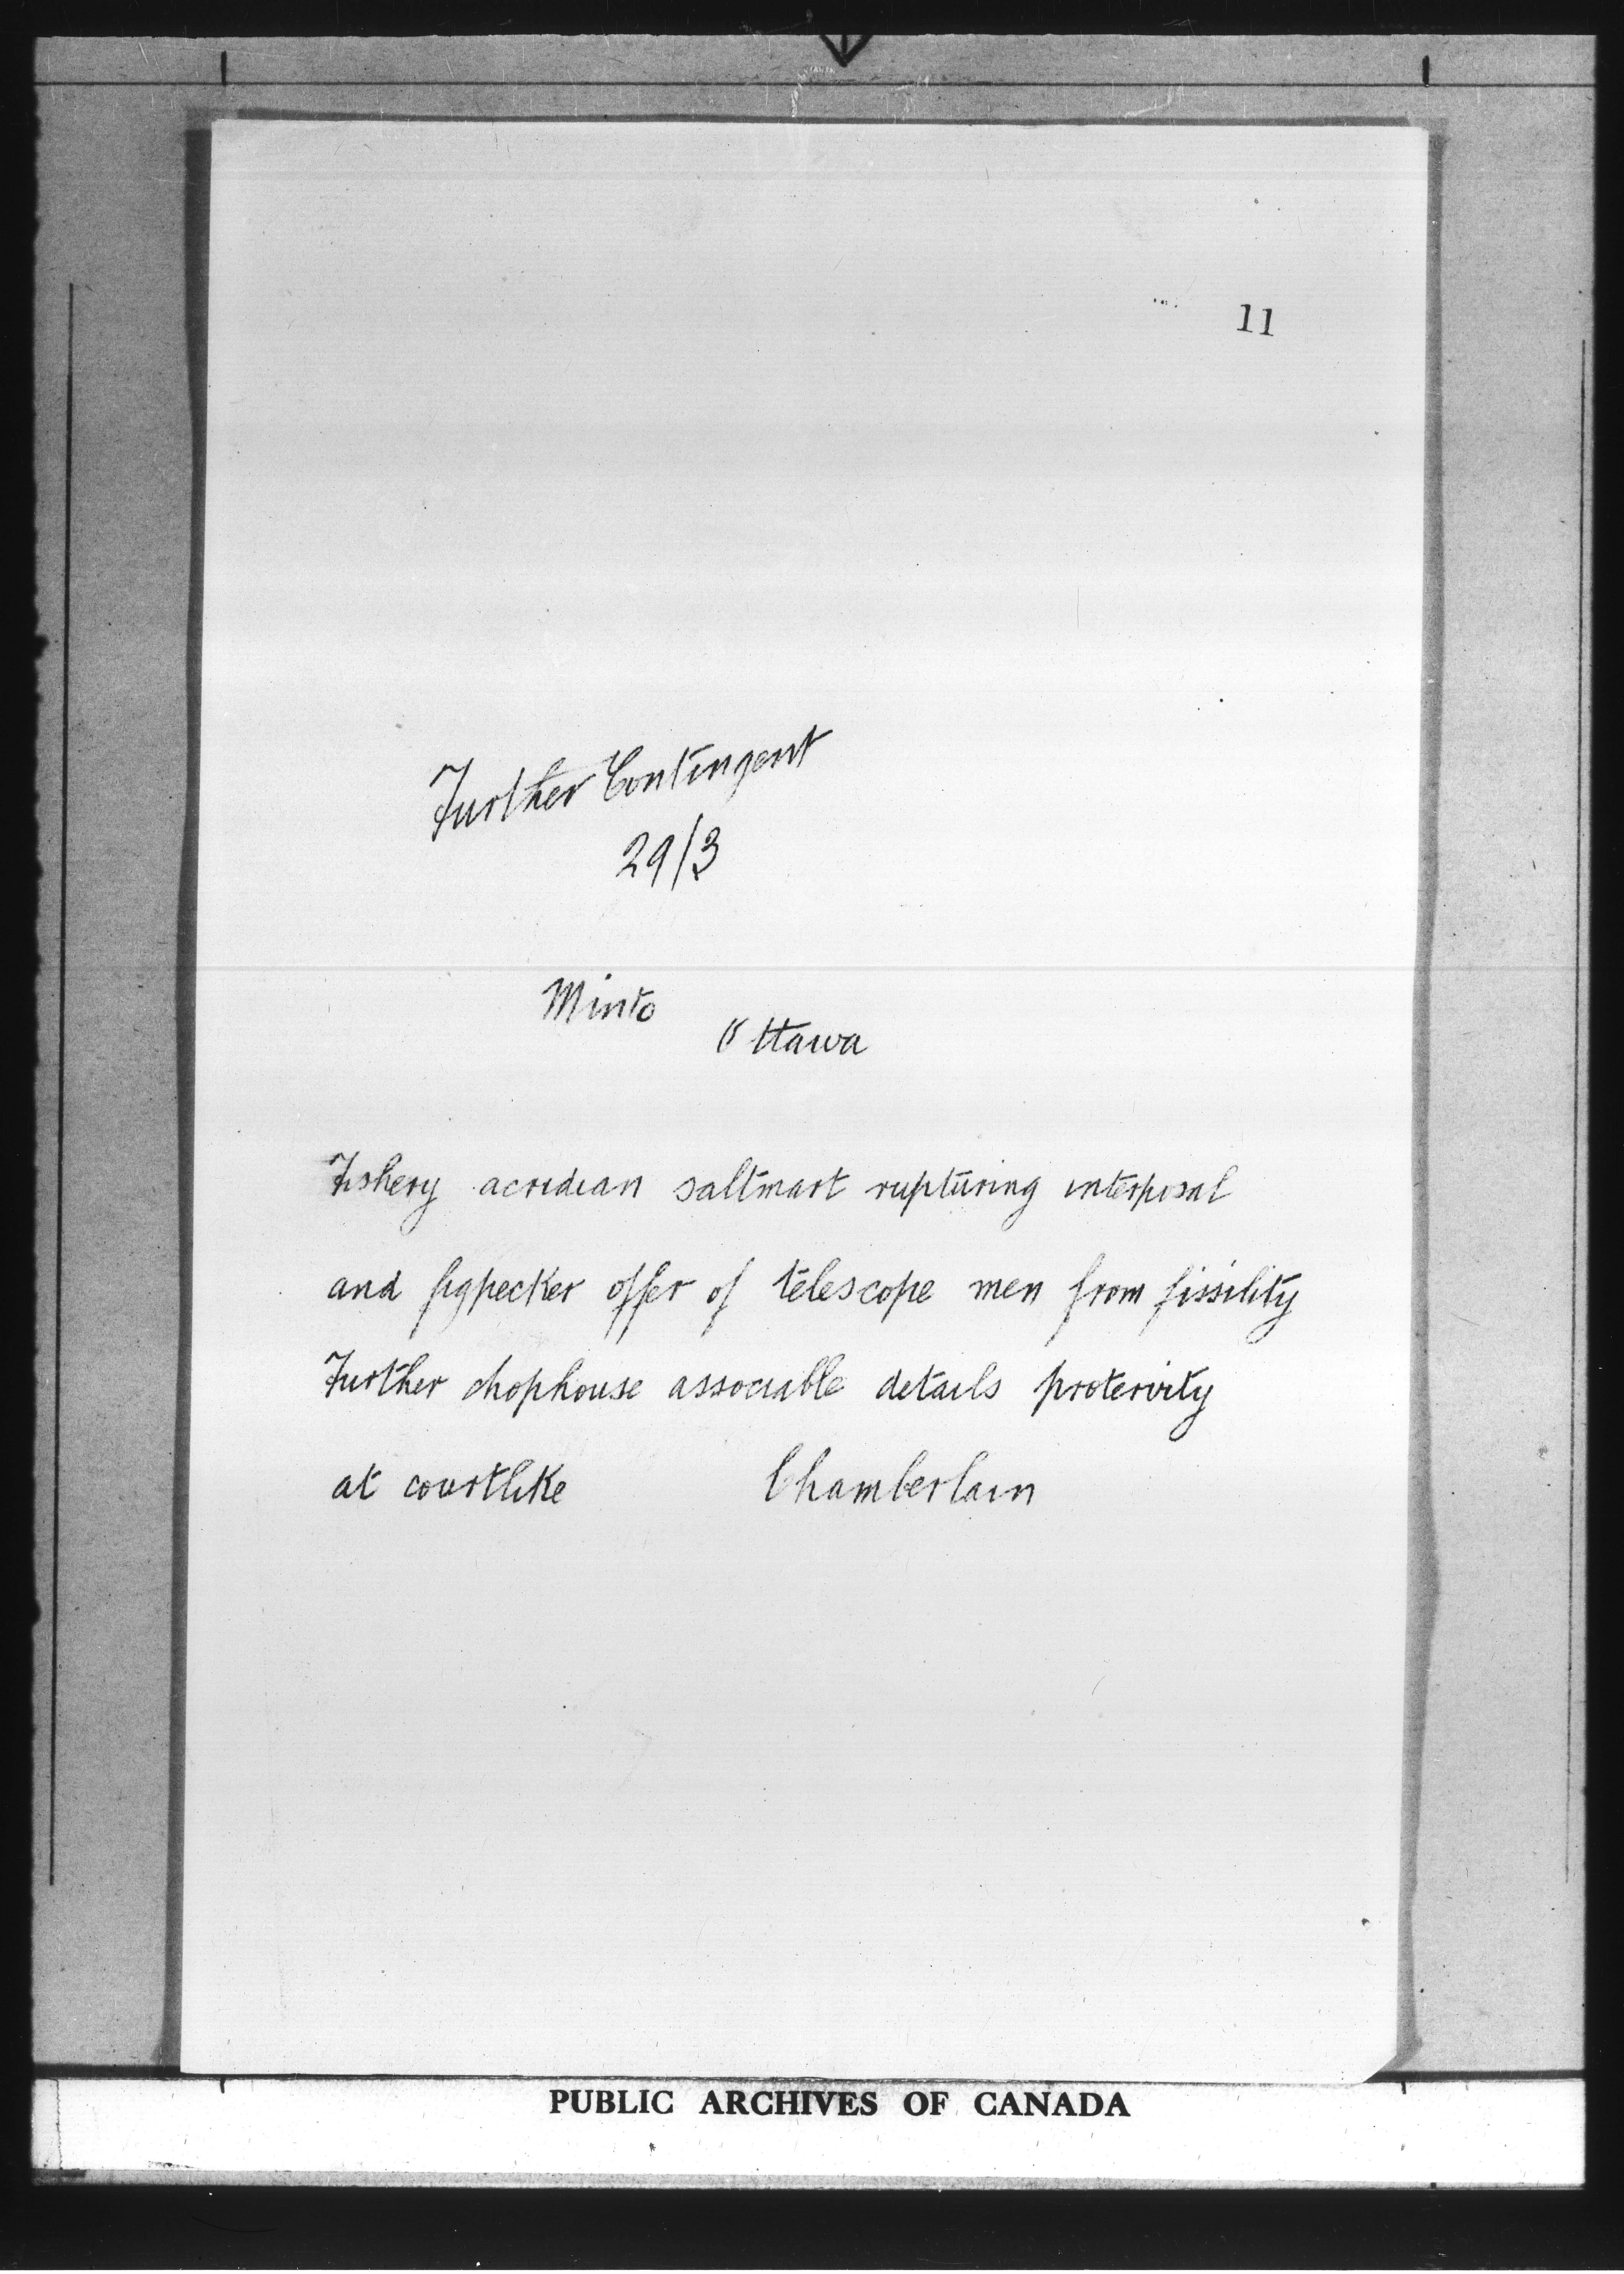 11
Further Contingent
29/3
Minto
Ottawa
Fishery acridian saltmart rupturing interposal
and figpecker offer of telescope men from fissility
Further chophouse associable details protervity
at courtlike Chamberlain
PUBLIC ARCHIVES OF CANADA